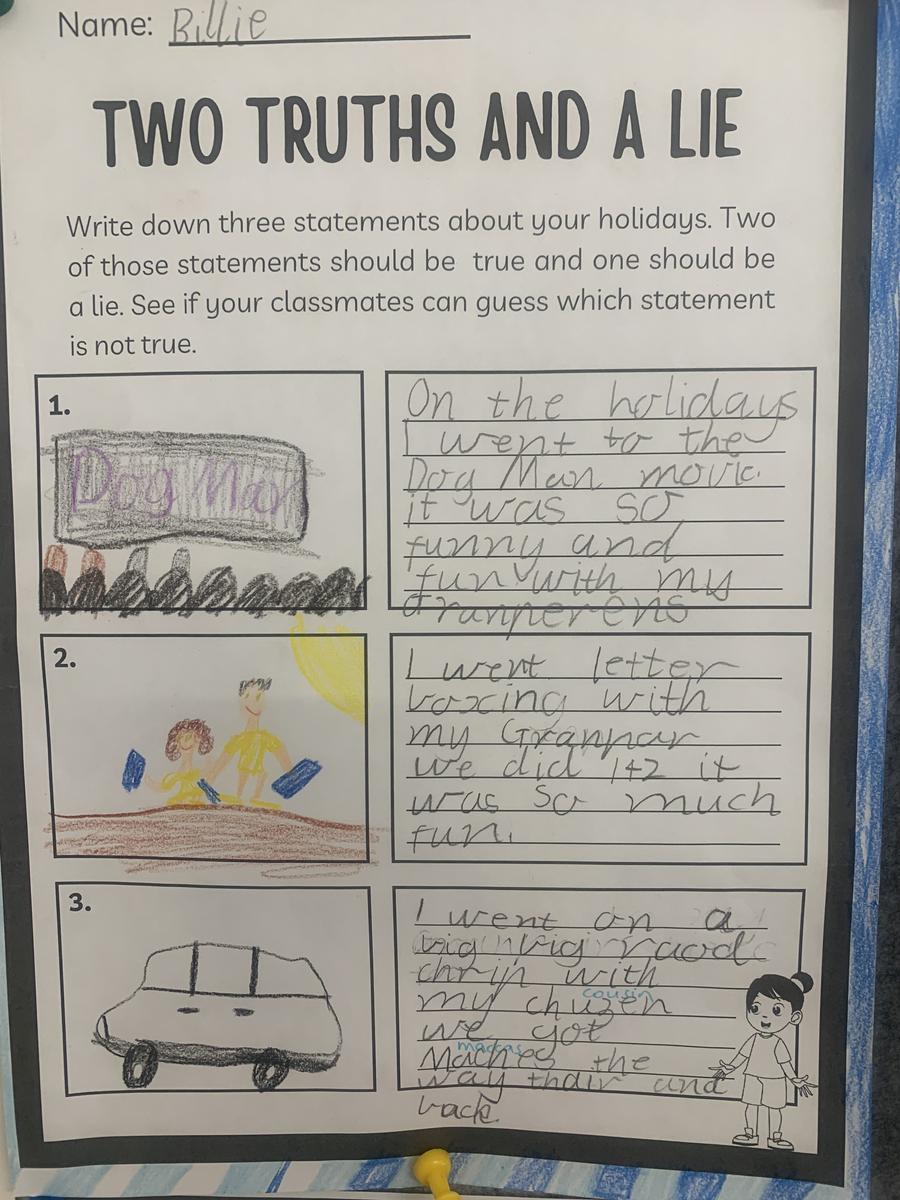 Name: Billie
TWO TRUTHS AND A LIE
Write down three statements about your holidays. Two
of those statements should be true and one should be
a lie. See if your classmates can guess which statement
is not true.
1.
Dog Man
On the holidays
I went to the
Dog Man movie.
it was so
funny and
fun with my
Granperens
2.
I went letter
boxing with
my Granpar
we did 142 it
was so much
fun.
3.
I went on a
big raod
chrip with
my chuzen
cousin
we got
maccas
the
way thair and
back